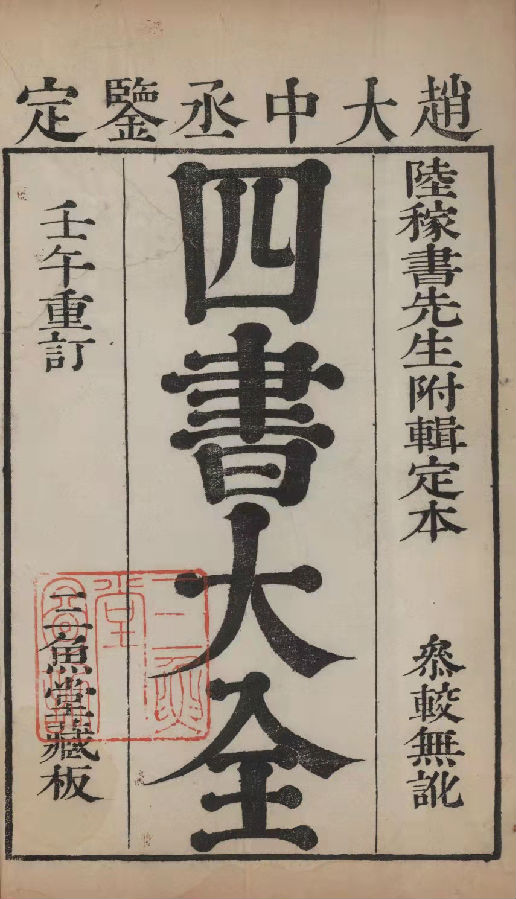 趙大中丞鑒定
陸稼書先生附輯定本
叅較無訛
四書大全
壬午重訂
三魚堂藏板